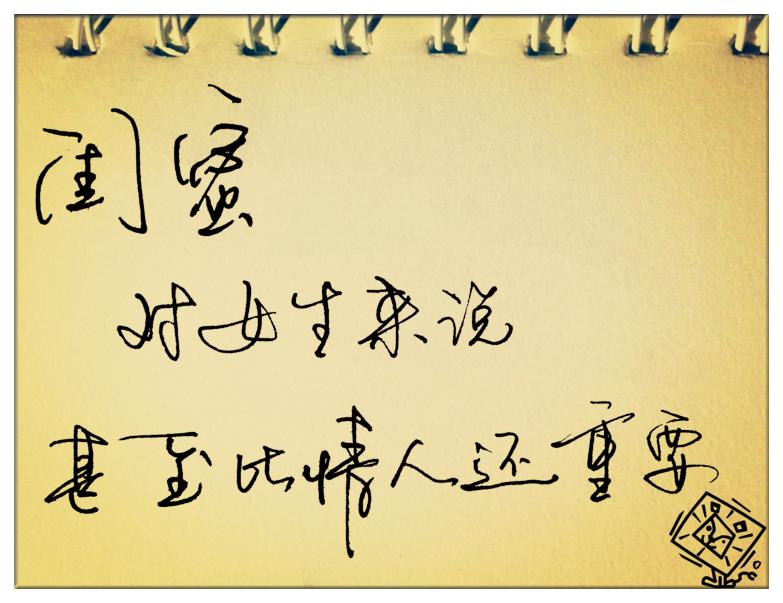 闺蜜
对女生来说
甚至比情人还重要